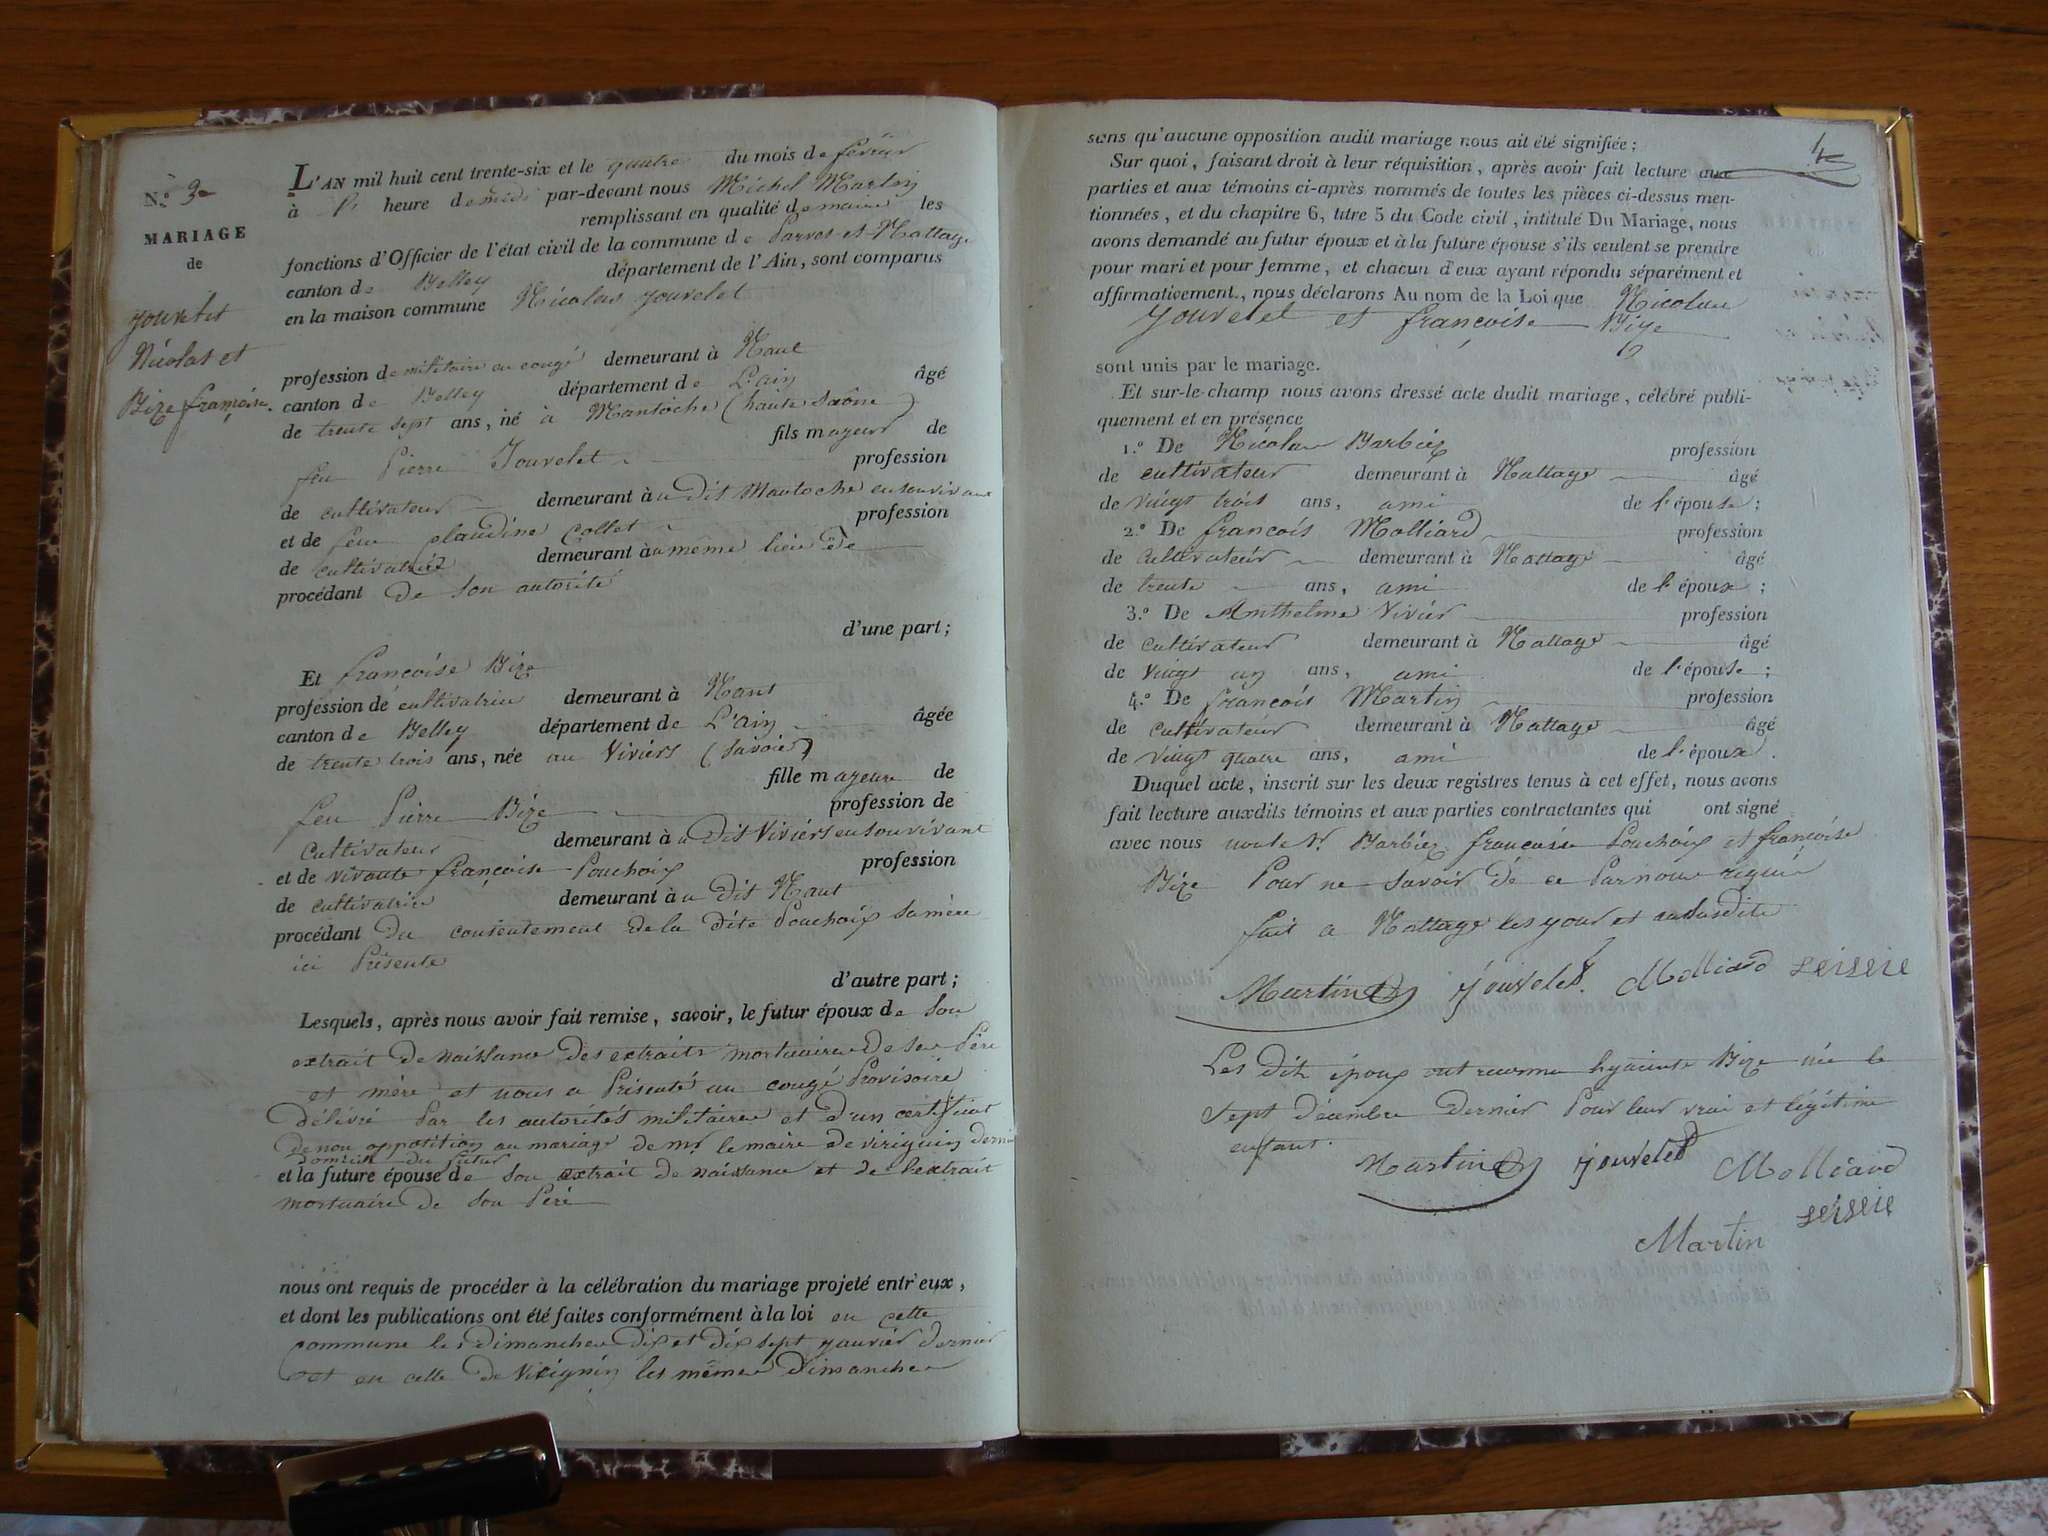 N.º 3e
MARIAGE
de
Jouvelet
Nicolas et
Bize françoise.
L'AN mil huit cent trente-six et le quatre du mois de février
à heure de midi par-devant nous Michel Martin
remplissant en qualité de maire les
fonctions d'Officier de l'état civil de la commune de Parves et Nattage
canton de Belley département de l'Ain, sont comparus
en la maison commune Nicolas Jouvelet
profession de militaire en congé demeurant à Nant
canton de Belley département de L'ain âgé
de trente sept ans, né à Mantoche (haute Saône)
fils mayeur de
feu Pierre Jouvelet profession
de cultivateur demeurant au dit Mantoche en son vivant
et de feue claudine Collet profession
de cultivatrice demeurant au même lieu
procédant de son autorité
d'une part;
Et françoise Bize
profession de cultivatrice demeurant à Nant
canton de Belley département de L'ain âgée
de trente trois ans, née au Viviers (Savoie)
fille mayeure de
feu Pierre Bize profession de
cultivateur demeurant au dit Viviers en son vivant
et de vivante françoise Pouchoix profession
de cultivatrice demeurant au dit Nant
procédant du consentement de la dite Pouchoix sa mère
ici Présente
d'autre part;
Lesquels, après nous avoir fait remise, savoir, le futur époux de son
extrait de naissance des extraits mortuaires de ses Père
et mère et nous a Présenté un congé Provisoire
délivré Par les autorités militaires et d'un certificat
de non opposition au mariage de mr. le maire de virignin dernier
domicile du futur
et la future épouse de son extrait de naissance et de l'extrait
mortuaire de son Père
nous ont requis de procéder à la célébration du mariage projeté entr'eux,
et dont les publications ont été faites conformément à la loi en cette
commune les dimanches dix et dix sept janvier dernier
et en celle de Virignin les mêmes Dimanches
4
sans qu'aucune opposition audit mariage nous ait été signifiée;
Sur quoi, faisant droit à leur réquisition, après avoir fait lecture aux
parties et aux témoins ci-après nommés de toutes les pièces ci-dessus men-
tionnées, et du chapitre 6, titre 5 du Code civil, intitulé Du Mariage, nous
avons demandé au futur époux et à la future épouse s'ils veulent se prendre
pour mari et pour femme, et chacun d'eux ayant répondu séparément et
affirmativement, nous déclarons Au nom de la Loi que Nicolas
Jouvelet et françoise Bize
sont unis par le mariage.
Et sur-le-champ nous avons dressé acte dudit mariage, célébré publi-
quement et en présence
1.º De Nicolas Barbier profession
de cultivateur demeurant à Nattage âgé
de vingt trois ans, ami de l'épouse;
2.º De françois Molliard profession
de cultivateur demeurant à Nattage âgé
de trente ans, ami de l'époux;
3.º De Anthelme Vivier profession
de cultivateur demeurant à Nattage âgé
de vingt un ans, ami de l'épouse;
4.º De françois Martin profession
de cultivateur demeurant à Nattage âgé
de vingt quatre ans, ami de l'époux.
Duquel acte, inscrit sur les deux registres tenus à cet effet, nous avons
fait lecture auxdits témoins et aux parties contractantes qui ont signé
avec nous Barbier françoise Pouchoix et françoise
Bize Pour ne savoir de ce Par nous requis
fait a Nattage les jour et an susdits
Martin Jouvelet Molliard
Les dits époux ont reconnu hyacinte Bize née le
sept décembre dernier Pour leur vrai et légitime
enfant.
Martin Jouvelet Molliard
Martin